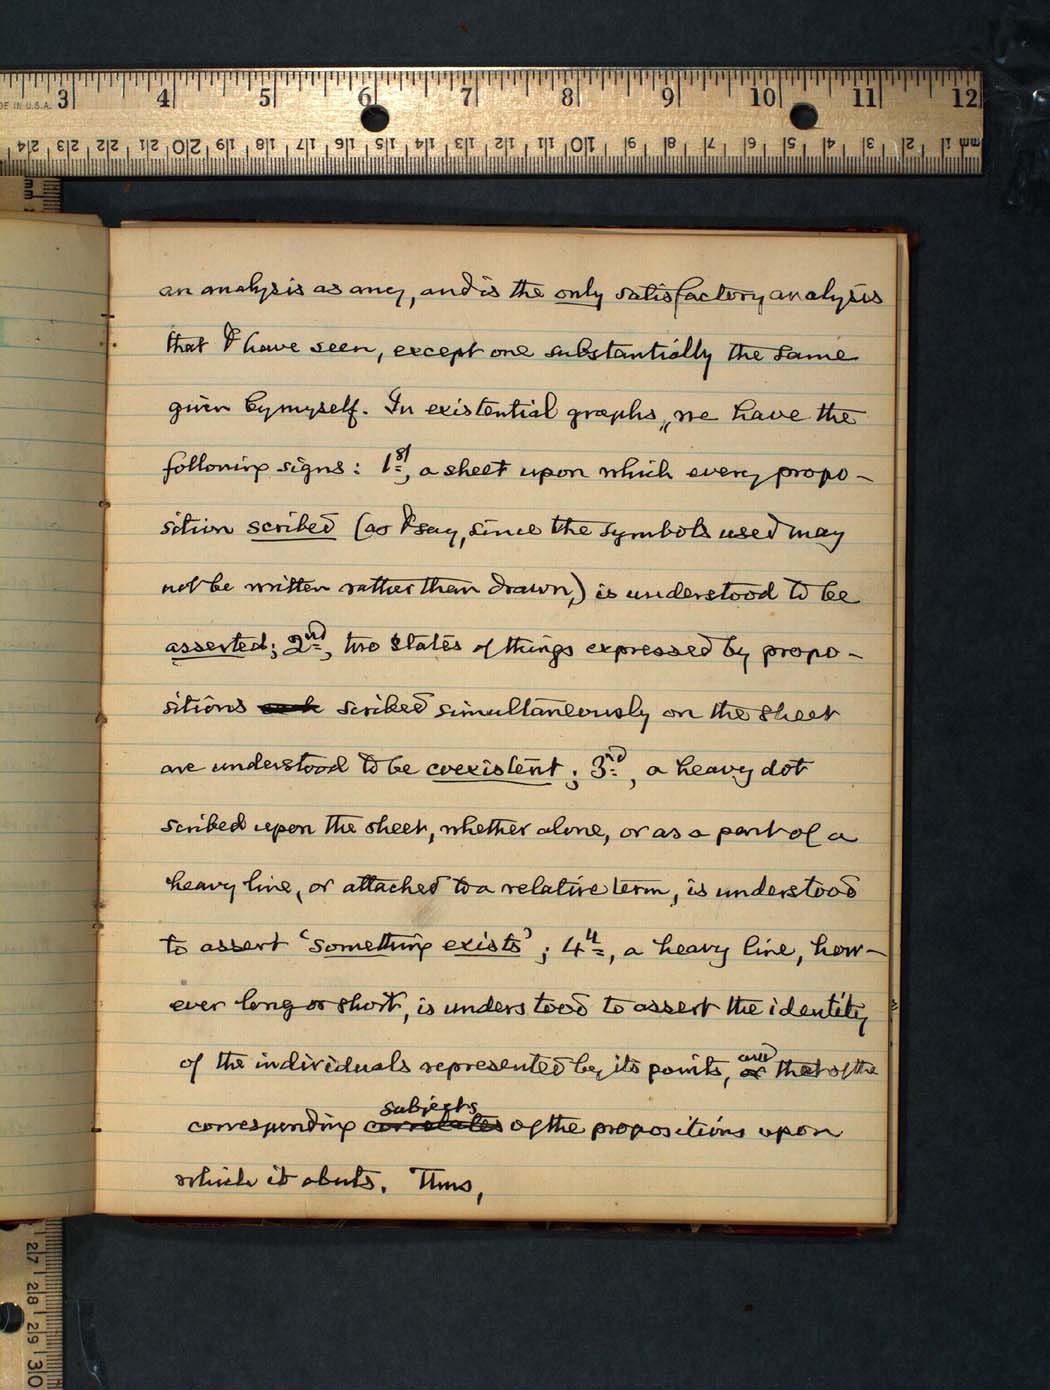 DE IN U.S.A. 3 4 5 6 7 8 9 10 11 12
24 23 22 21 20 19 18 17 16 15 14 13 12 11 10 9 8 7 6 5 4 3 2 1 mm
mm
an analysis as any, and is the only satisfactory analysis
that I have seen, except one substantially the same
given by myself. In existential graphs, we have the
following signs: 1st, a sheet upon which every propo-
sition scribed (as I say, since the symbols used may
not be written rather than drawn,) is understood to be
asserted; 2nd, two states of things expressed by propo-
sitions scribed simultaneously on the sheet
are understood to be coexistent; 3rd, a heavy dot
scribed upon the sheet, whether alone, or as a part of a
heavy line, or attached to a relative term, is understood
to assert 'something exists'; 4th, a heavy line, how-
ever long or short, is understood to assert the identity
of the individuals represented by its points, and that of the
corresponding correlates subjects of the propositions upon
which it abuts. Thus,
27 28 29 30